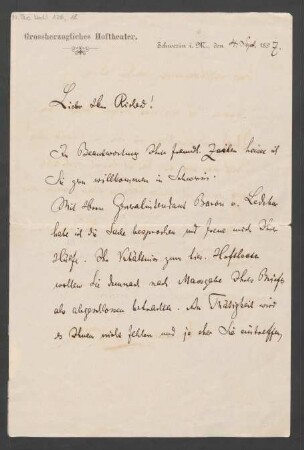 Grossherzogliches Hoftheater.
Schwerin i. M., den 4. Sept. 1897.
Lieber Herr Ricked!
In Beantwortung Ihrer freundl. Zeilen heisse ich
Sie gern willkommen in Schwerin.
Mit Herrn Generalintendant Baron v. Ledebur
habe ich die Sache besprochen und freue mich Ihrer
Hülfe. Ihr Verhältniss zum hies. Hoftheater
wollen Sie demnach nach Maassgabe Ihres Briefes
als abgeschlossen betrachten. An Thätigkeit wird
es Ihnen nicht fehlen und je eher Sie eintreffen,